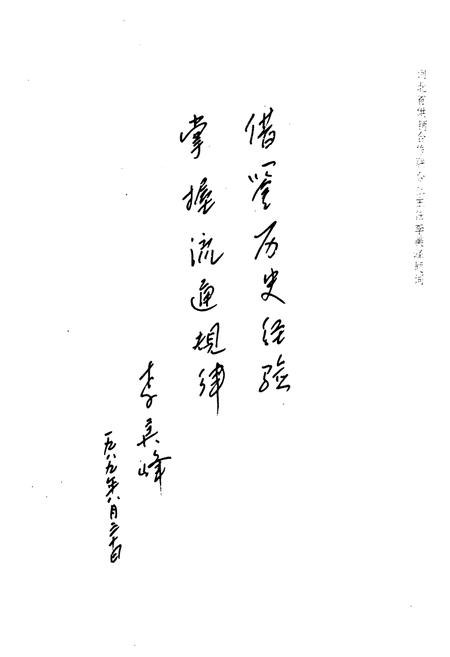 河北省供销合作联合社主任李英峰题词
借鉴历史经验
掌握流通规律
李英峰
一九八九年八月二十日